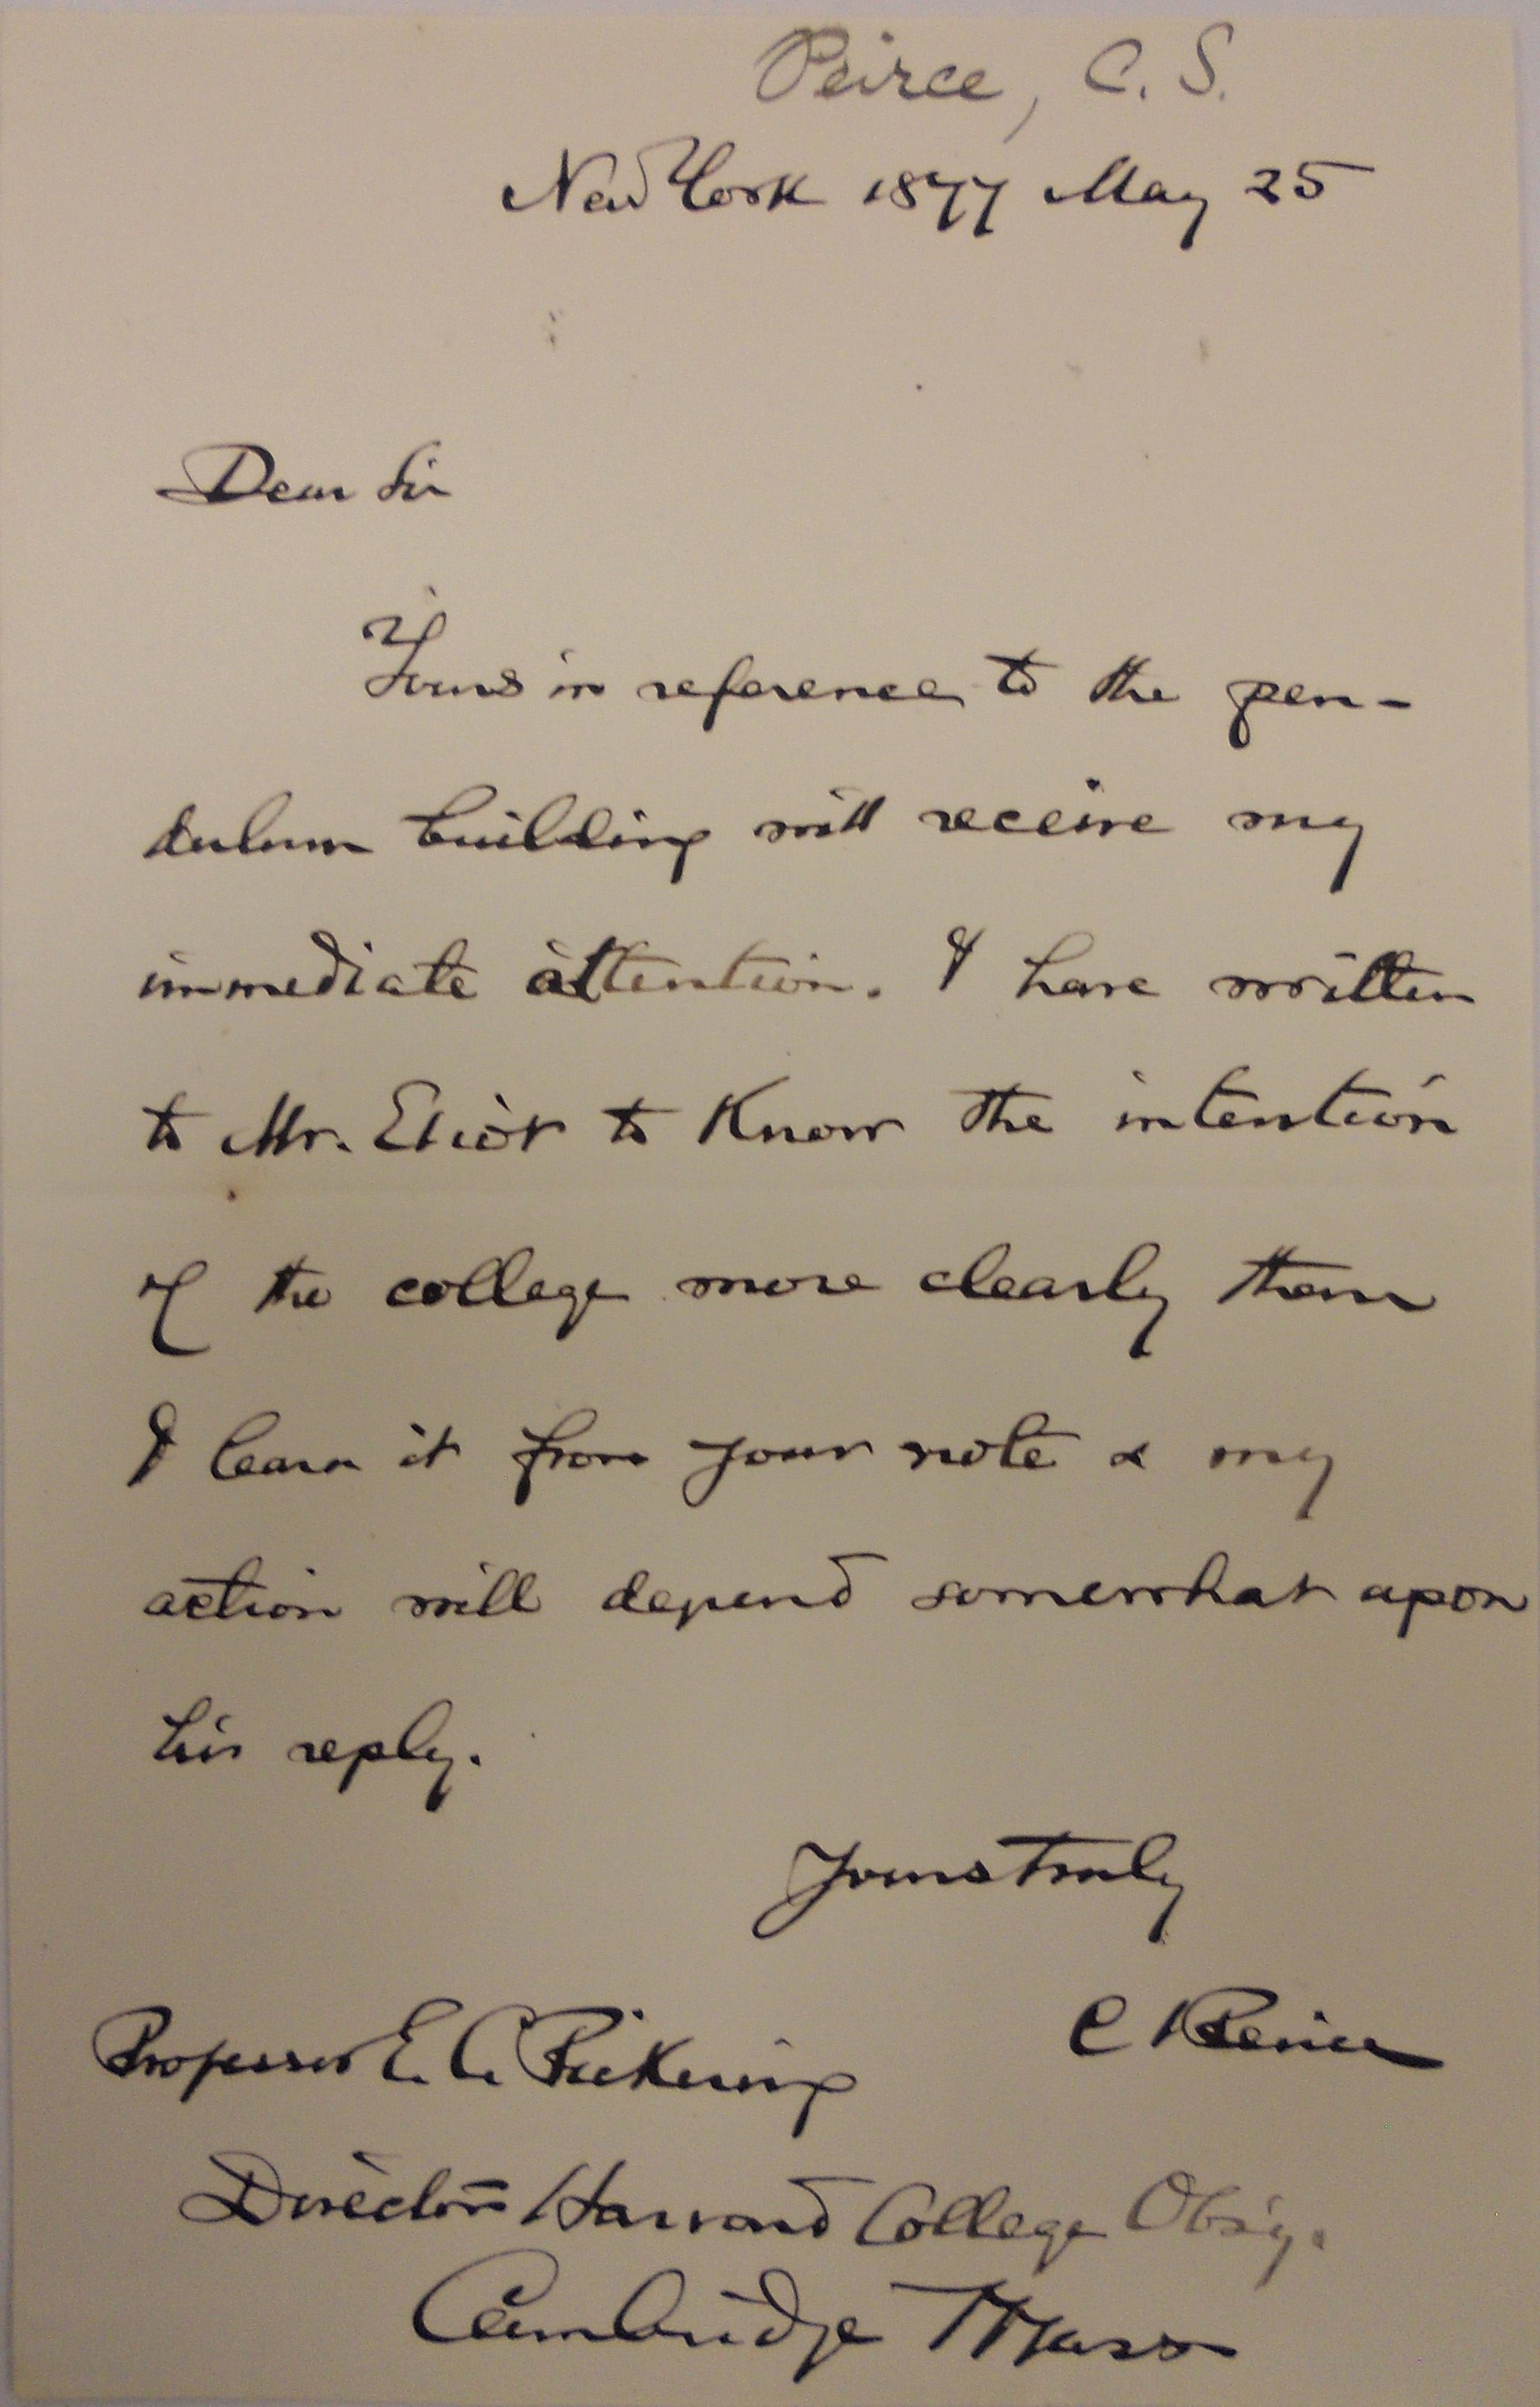 Peirce, C. S.
New York 1877 May 25
Dear Sir
Yours in reference to the pen-
dulum building will receive my
immediate attention. I have written
to Mr. Eliot to know the intention
of the college more clearly than
I learn it from your note & my
action will depend somewhat upon
his reply.
Yours truly
C S Peirce
Professor E. C. Pickering
Director Harvard College Obs'y.
Cambridge Mass